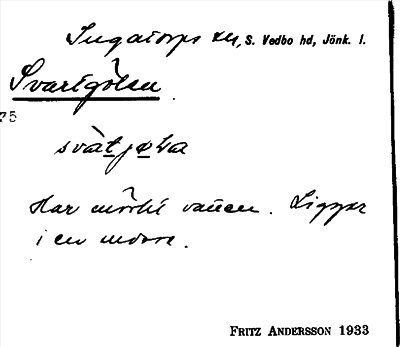 Ingatorps sn, S. Vedbo hd, Jönk. l.
Svartgölen
75
svàtjøla
Har mörkt vatten. Ligger
i en mosse.
FRITZ ANDERSSON 1933